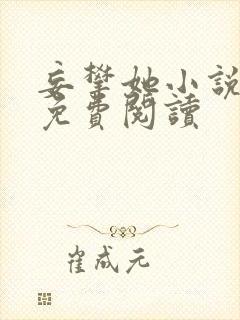 妄攀她小說
免費閱讀
崔成元